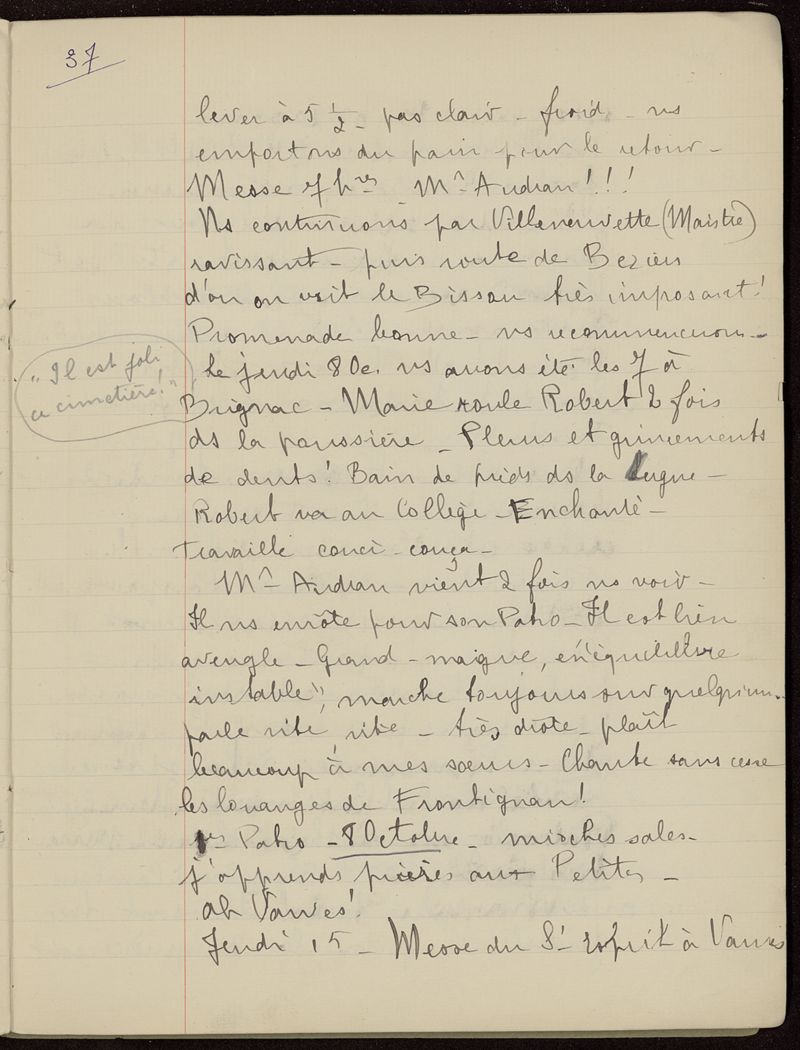 37
lever à 5 1/2 - pas clair - froid - ns
emportons du pain pour le retour -
Messe 7 hres Mr Audran!!!
Ns continuons par Villeneuvette (Maistre)
ravissant - puis route de Beziers
d'ou on voit le Bissou très imposant!
Promenade bonne - ns recommencerons -
"Il est joli
ce cimetière!"
Le jeudi 8 Oc. ns avons été les 7 à
Brignac - Marie roule Robert 2 fois
ds la poussière - Pleurs et grincements
de dents! Bain de pieds ds la Lergue -
Robert va au Collège - Enchanté -
Travaille couci-couça -
Mr Audran vient 2 fois ns voir -
Il ns enrôle pour son Patro - Il est bien
aveugle - Grand - maigre, en "équilibre
instable", marche toujours sur quelqu'un -
parle vite, vite - très drôle - plaît
beaucoup à mes sœurs - Chante sans cesse
les louanges de Frontignan!
1er Patro - 8 Octobre - mioches sales -
j'apprends prières aux Petites -
Ah Vanves!
Jeudi 15 - Messe du St Esprit à Vanves